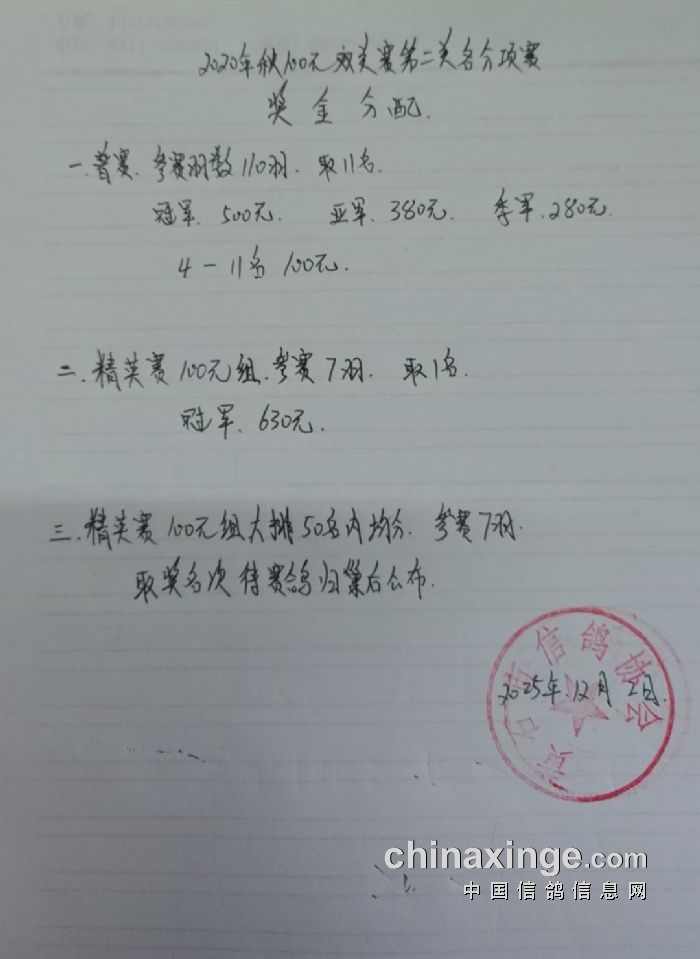 2020年秋100元双关赛第二关各分项赛
奖金分配.
一.普赛.参赛羽数110羽.取11名.
冠军.500元.亚军.380元.季军.280元.
4-11名100元.
二.精英赛100元组.参赛7羽.取1名.
冠军.630元.
三.精英赛100元组大排50名内均分.参赛7羽.
取奖名次待赛鸽归巢后公布.
黄石市信鸽协会
2025年.12月2日.
chinaxinge.com
中国信鸽信息网